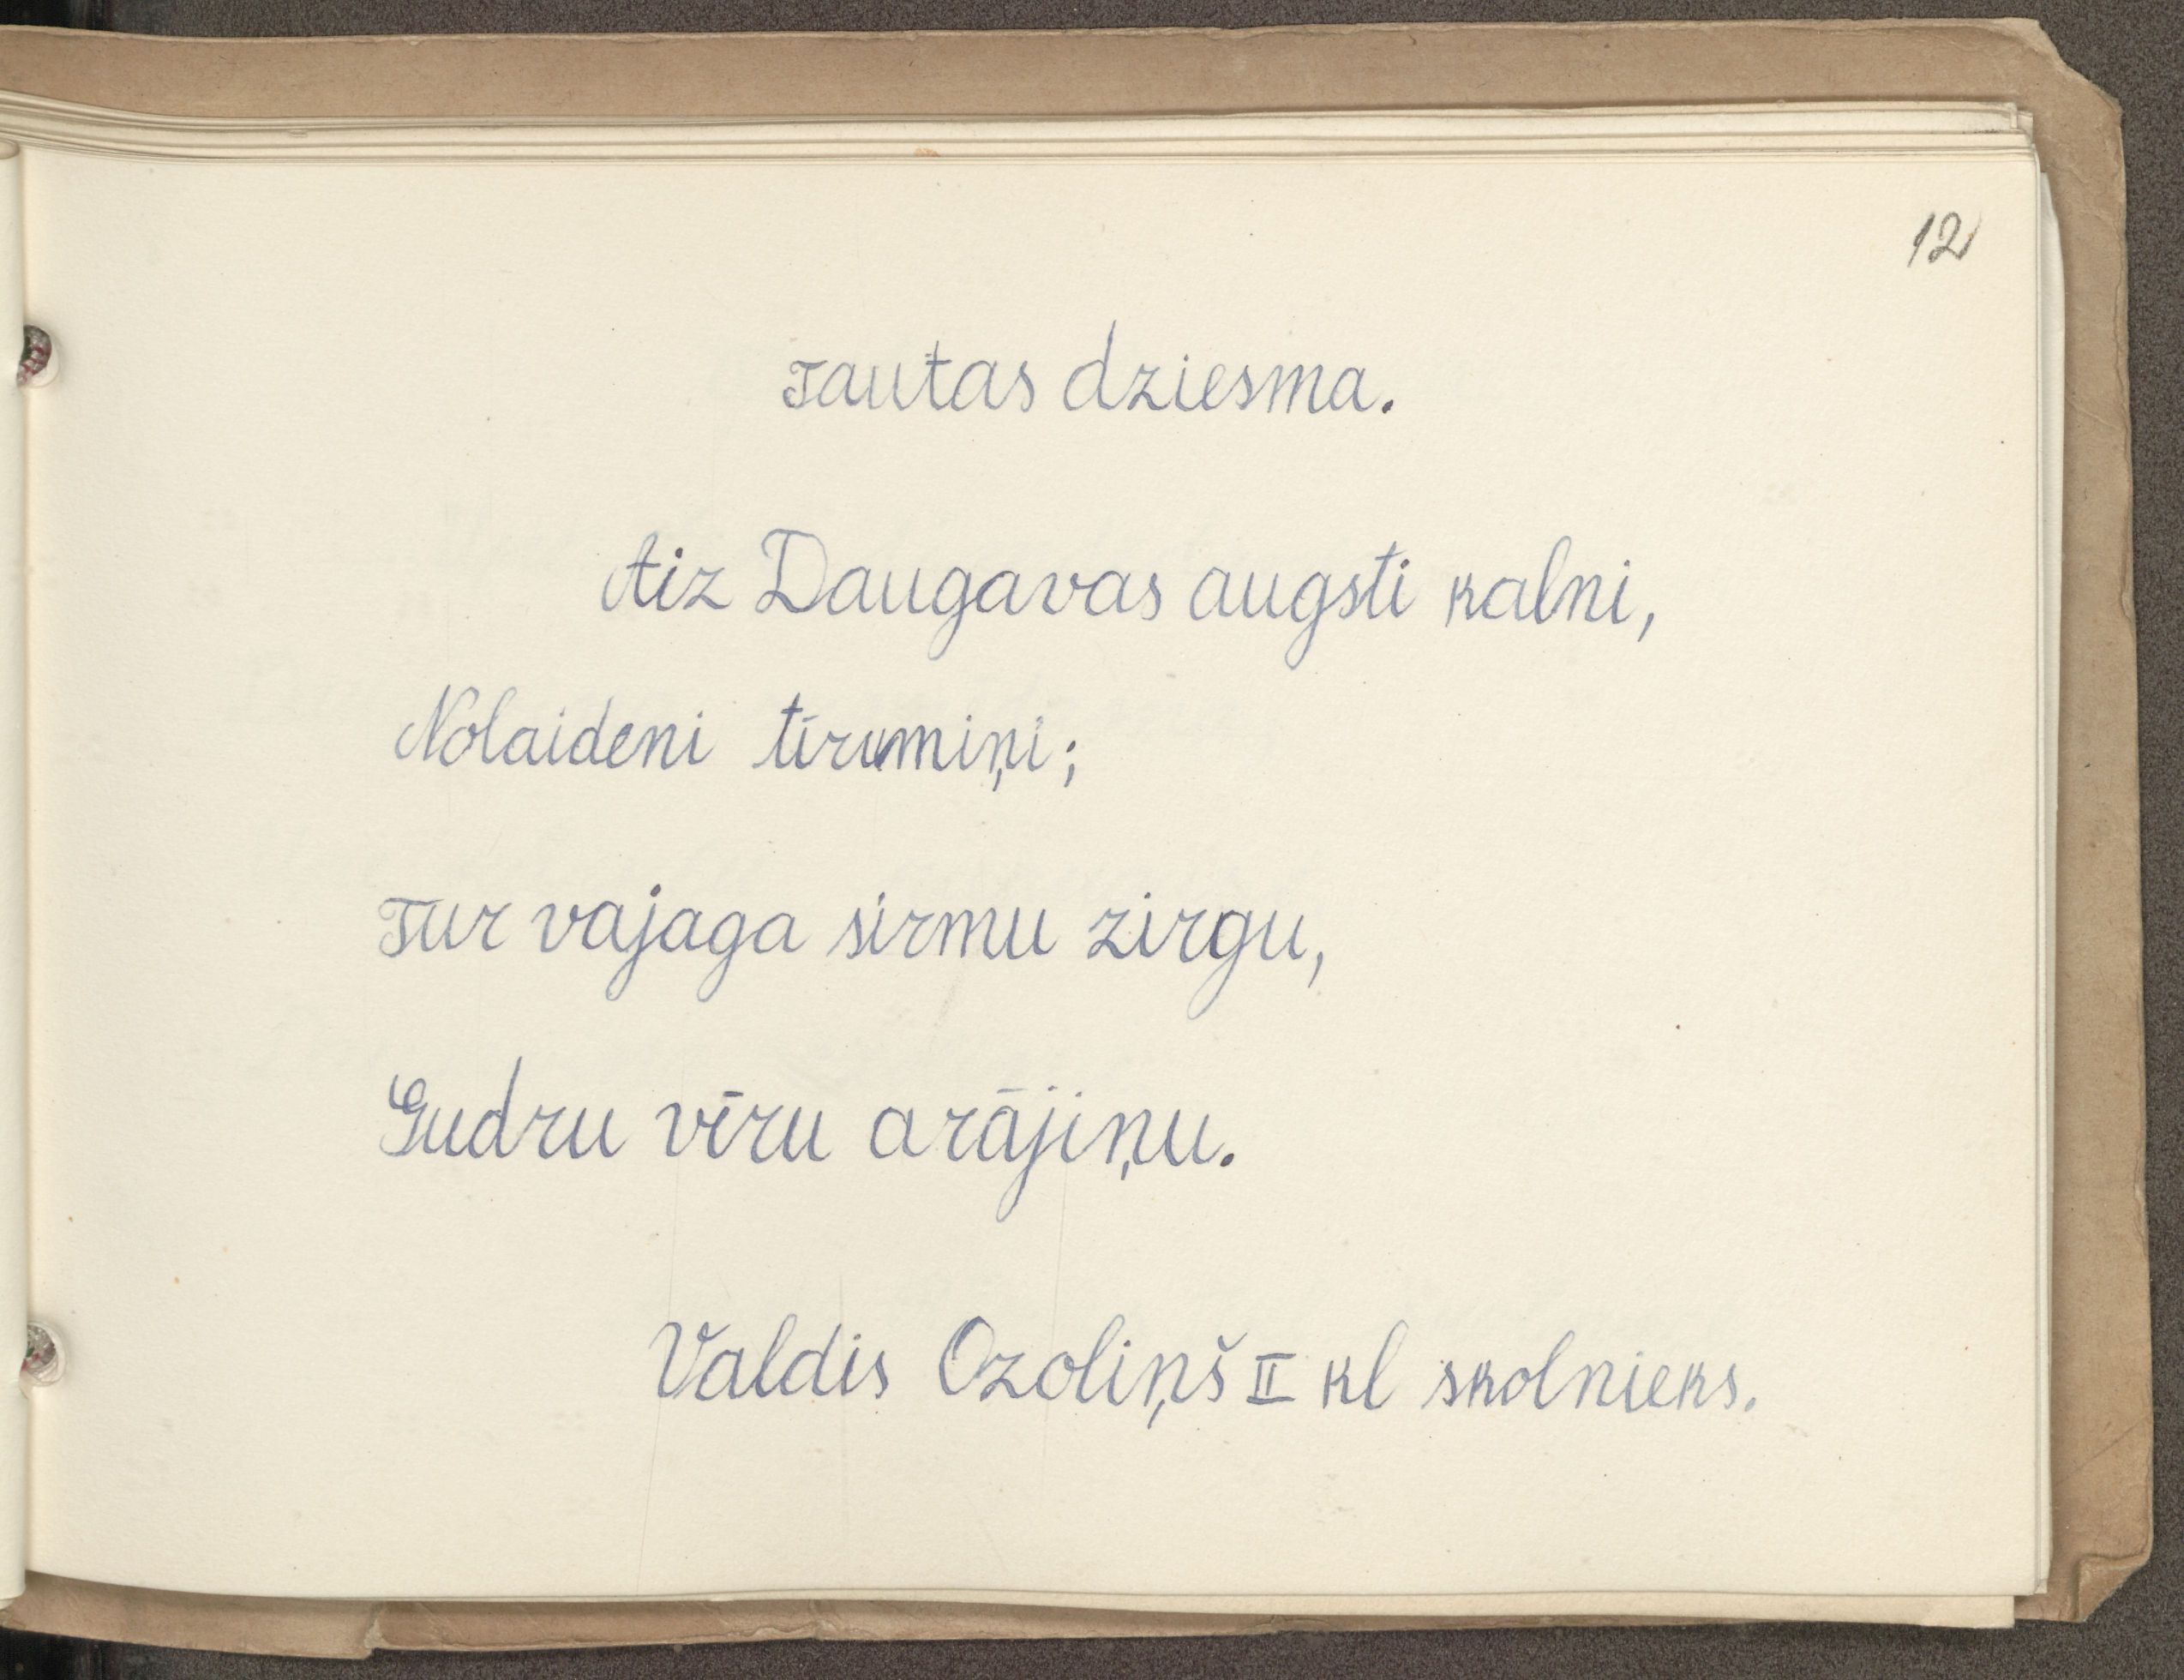 12
Tautas dziesma.
Aiz Daugavas augsti kalni,
Nolaideni tīrumiņi;
Tur vajaga sirmu zirgu,
Gudru vīru arājiņu.
Valdis Ozoliņš II kl skolnieks.